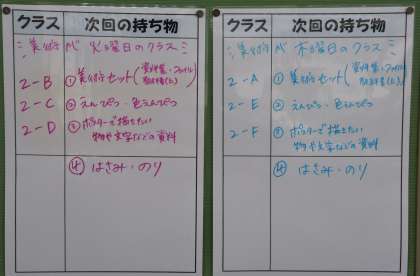 クラス 次回の持ち物
美術 火曜日のクラス
2-B ①美術セット(資料集・ファイル
2-C ②えんぴつ・色えんぴつ
2-D ③ポスターで描きたい
物や文字などの資料
④はさみ・のり
クラス 次回の持ち物
美術 木曜日のクラス
2-A ①美術セット(資料集・ファイル
2-E ②えんぴつ・色えんぴつ
2-F ③ポスターで描きたい
物や文字などの資料
④はさみ・のり